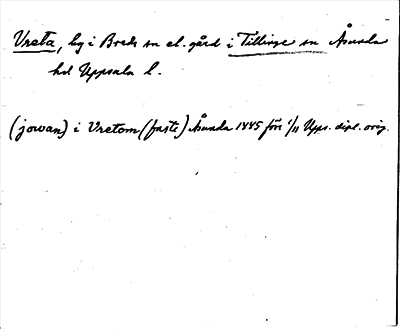 Vreta, by i Breds sn el. gård i Tillinge sn Åsunda
hd Uppsala l.
(jowan) i Vretom (faste) Åsunda 1445 före 1/11 Upps. dipl. orig.